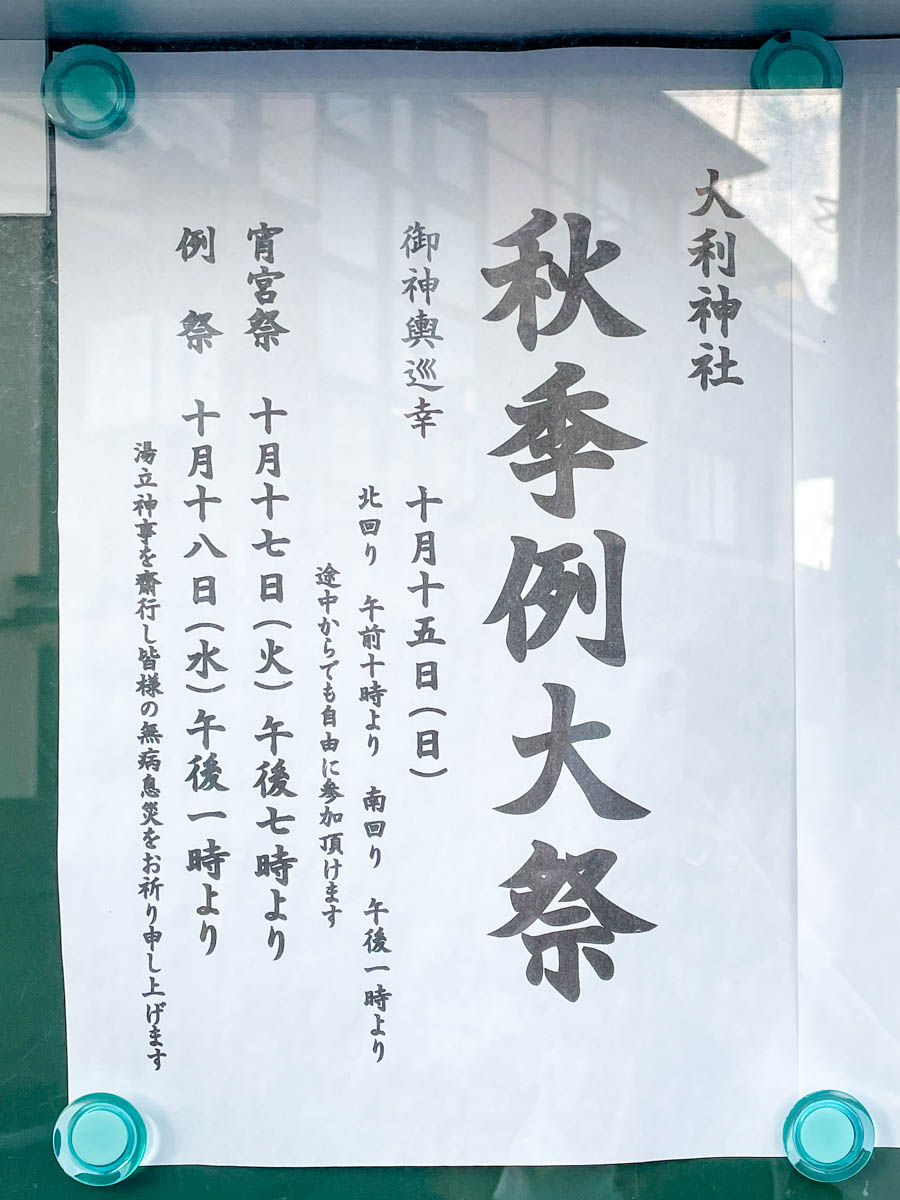 大利神社
秋季例大祭
御神輿巡幸 十月十五日(日)
北回り 午前十時より 南回り 午後一時より
途中からでも自由に参加頂けます
宵宮祭 十月十七日(火)午後七時より
例祭 十月十八日(水)午後一時より
湯立神事を齋行し皆様の無病息災をお祈り申し上げます